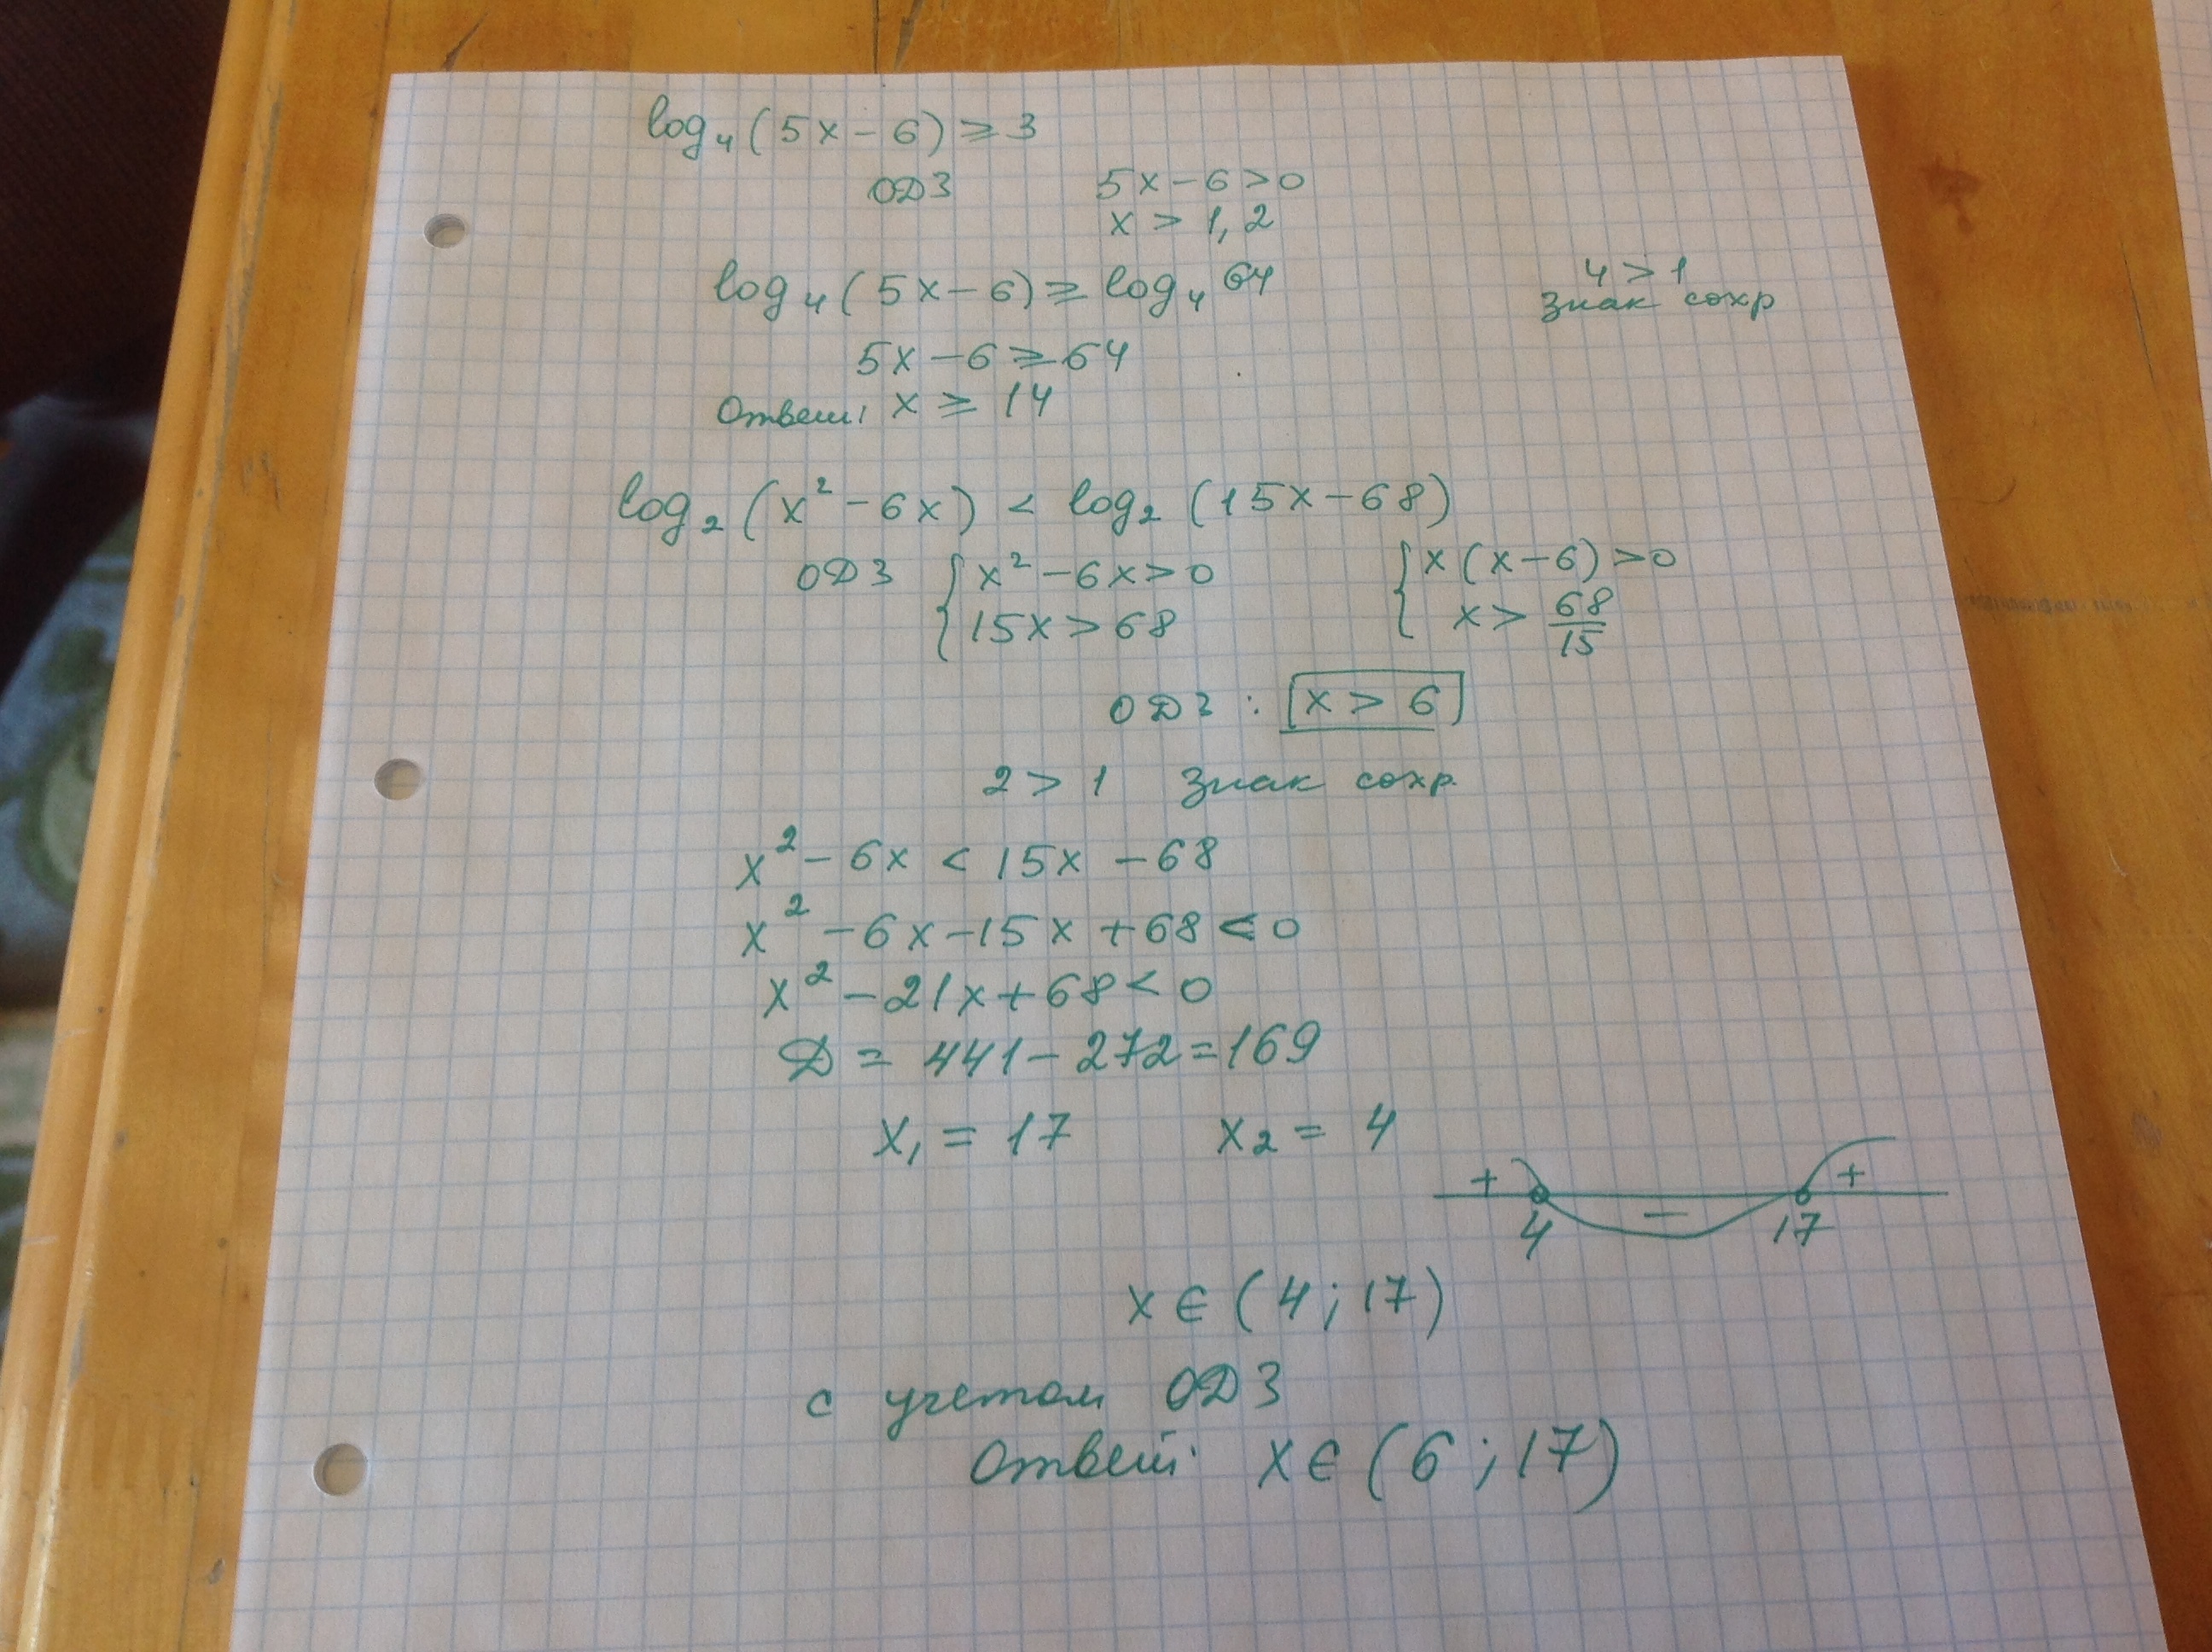 log₄(5x-6)≥3
ОДЗ 5x-6>0
x>1,2
log₄(5x-6)≥log₄64 4>1
знак сохр
5x-6≥64
Ответ: x≥14
log₂(x²-6x)<log₂(15x-68)
ОДЗ { x²-6x>0 { x(x-6)>0
15x>68 x>68/15
ОДЗ: x>6
2>1 знак сохр.
x²-6x<15x-68
x²-6x-15x+68<0
x²-21x+68<0
Д=441-272=169
x₁=17 x₂=4
+ − +
4 17
x∈(4;17)
с учетом ОДЗ
Ответ: x∈(6;17)